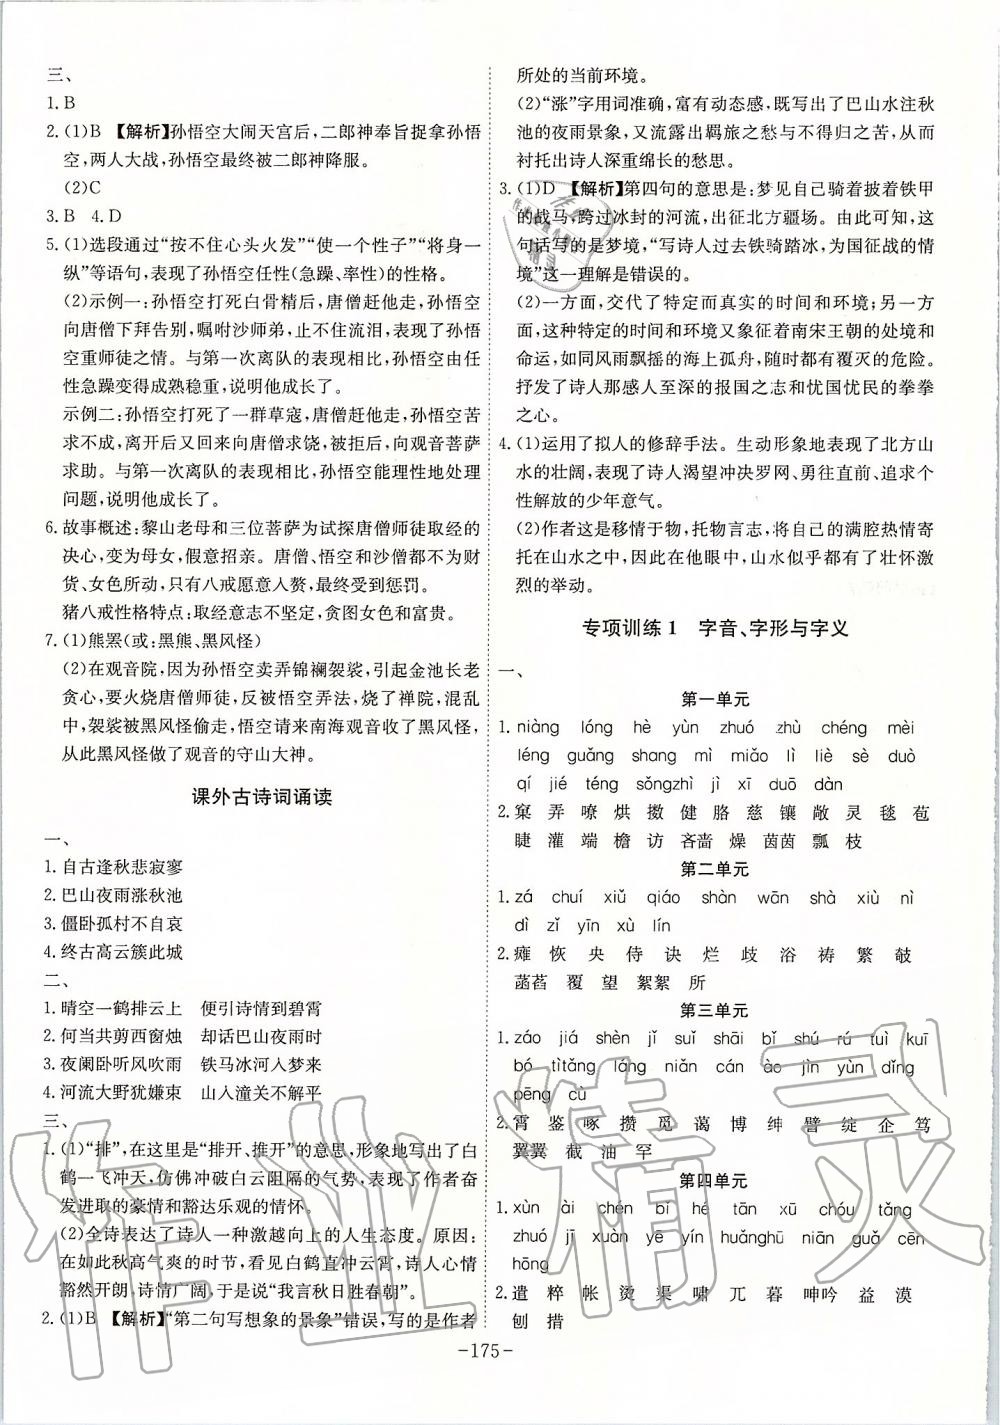 三、
1. B
2. (1)B 【解析】孙悟空大闹天宫后,二郎神奉旨捉拿孙悟
空,两人大战,孙悟空最终被二郎神降服。
(2)C
3. B 4. D
5. (1)选段通过“按不住心头火发”“使一个性子”“将身一
纵”等语句,表现了孙悟空任性(急躁、率性)的性格。
(2)示例一:孙悟空打死白骨精后,唐僧赶他走,孙悟空
向唐僧下拜告别,嘱咐沙师弟,止不住流泪,表现了孙悟
空重师徒之情。与第一次离队的表现相比,孙悟空由任
性急躁变得成熟稳重,说明他成长了。
示例二:孙悟空打死了一群草寇,唐僧赶他走,孙悟空苦
求不成,离开后又回来向唐僧求饶,被拒后,向观音菩萨
求助。与第一次离队的表现相比,孙悟空能理性地处理
问题,说明他成长了。
6. 故事概述:黎山老母和三位菩萨为试探唐僧师徒取经的
决心,变为母女,假意招亲。唐僧、悟空和沙僧都不为财
货、女色所动,只有八戒愿意入赘,最终受到惩罚。
猪八戒性格特点:取经意志不坚定,贪图女色和富贵。
7. (1)熊罴(或:黑熊、黑风怪)
(2)在观音院,因为孙悟空卖弄锦襕袈裟,引起金池长老
贪心,要火烧唐僧师徒,被悟空弄法,烧了禅院,混乱
中,袈裟被黑风怪偷走,悟空请来南海观音收了黑风怪,
从此黑风怪做了观音的守山大神。
课外古诗词诵读
一、
1. 自古逢秋悲寂寥
2. 巴山夜雨涨秋池
3. 僵卧孤村不自哀
4. 终古高云簇此城
二、
1. 晴空一鹤排云上 便引诗情到碧霄
2. 何当共剪西窗烛 却话巴山夜雨时
3. 夜阑卧听风吹雨 铁马冰河入梦来
4. 河流大野犹嫌束 山入潼关不解平
三、
1. (1)“排”,在这里是“排开、推开”的意思,形象地写出了白
鹤一飞冲天,仿佛冲破白云阻隔的气势,表现了作者奋
发进取的豪情和豁达乐观的情怀。
(2)全诗表达了诗人一种激越向上的人生态度。原因:
在如此秋高气爽的时节,看见白鹤直冲云霄,诗人心情
豁然开朗,诗情广阔,于是说“我言秋日胜春朝”。
2. (1)B 【解析】“第二句写想象的景象”错误,写的是作者
所处的当前环境。
(2)“涨”字用词准确,富有动态感,既写出了巴山水注秋
池的夜雨景象,又流露出羁旅之愁与不得归之苦,从而
衬托出诗人深重绵长的愁思。
3. (1)D 【解析】第四句的意思是:梦见自己骑着披着铁甲
的战马,跨过冰封的河流,出征北方疆场。由此可知,这
句话写的是梦境,“写诗人过去铁骑踏冰,为国征战的情
境”这一理解是错误的。
(2)一方面,交代了特定而真实的时间和环境;另一方
面,这种特定的时间和环境又象征着南宋王朝的处境和
命运,如同风雨飘摇的海上孤舟,随时都有覆灭的危险。
抒发了诗人那感人至深的报国之志和忧国忧民的拳拳
之心。
4. (1)运用了拟人的修辞手法。生动形象地表现了北方山
水的壮阔,表现了诗人渴望冲决罗网、勇往直前、追求个
性解放的少年意气。
(2)作者这是移情于物,托物言志,将自己的满腔热情寄
托在山水之中,因此在他眼中,山水似乎都有了壮怀激
烈的举动。
专项训练1 字音、字形与字义
一、
第一单元
1. niàng lóng hè yùn zhuó zhù chéng mèi
léng guǎng shang mì miǎo lì liè sè duò
qí jié téng sōngzhēn xī duō dàn
2. 窠 弄 嘹 烘 擞 健 胳 慈 镶 敞 灵 毯 苞
睫 灌 端 檐 访 吝啬 燥 茵茵 瓢 枝
第二单元
1. zá chuí xiǔ qiáo shàn wān shà xiù nì
dì zǐ yīn xù lín
2. 瘫 恢 央 侍 诀 烂 歧 浴 祷 繁 攲
菡萏 覆 望 絮絮 所
第三单元
1. záo jiá shèn jǐ suǐ shāi bǐ shú rú tuì kuī
bó tìtǎng láng nián cán ào jìn yùn dǐng
pēng cù
2. 霄 鉴 啄 攒 觅 蔼 博 绅 譬 绽 企 笃
翼翼 截 油 罕
第四单元
1. xùn ài chén bǐ hé tān xū chóu tǎng
zhuó jī xuàn yē yín huānghū niān guǒ cēn
hōng
2. 遣 粹 帐 烫 渠 啸 兀 暮 呻吟 益 漠
刨 措
-175-
作业精灵